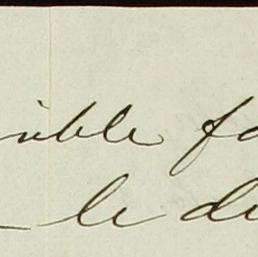 ible fo
le de